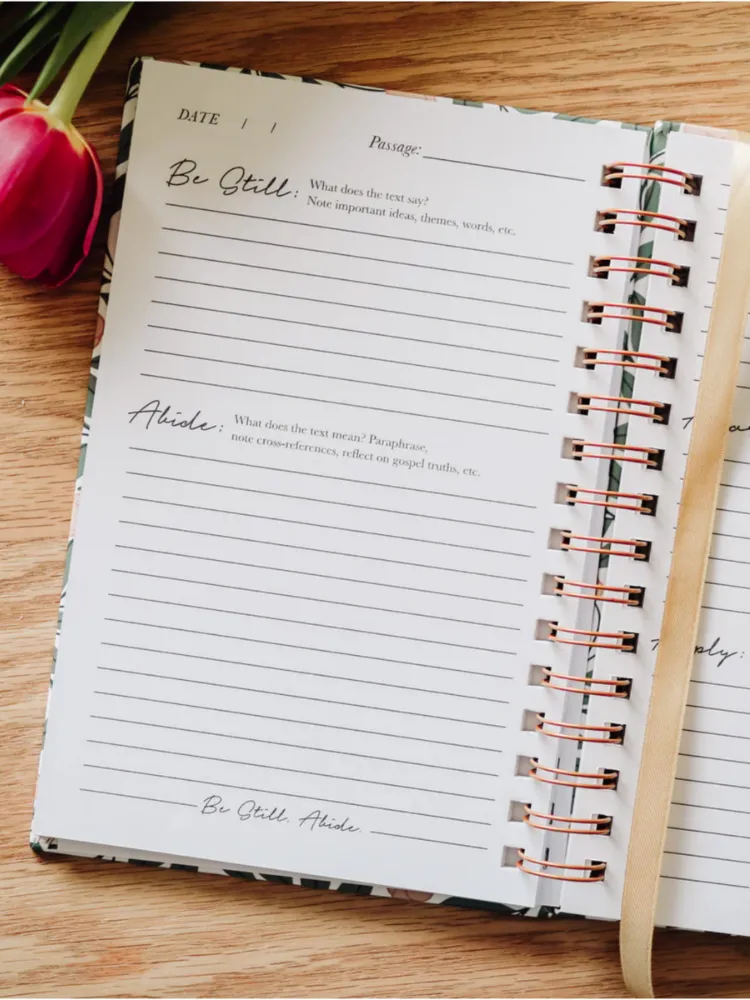 DATE / /
Passage:
Be Still: What does the text say?
Note important ideas, themes, words, etc.
Abide: What does the text mean? Paraphrase,
note cross-references, reflect on gospel truths, etc.
Be Still. Abide.